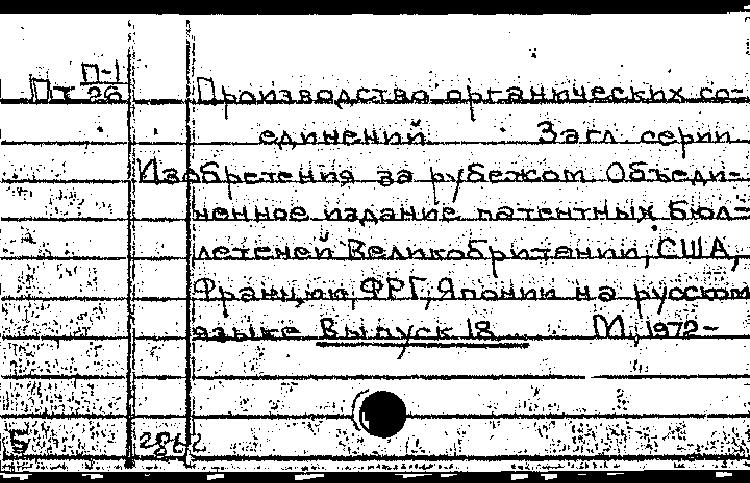 Пт П-1/26 Производство органических со-
единений. Загл. серии
Изобретения за рубежом. Объеди-
ненное издание патентных бюл-
летеней Великобритании, США,
Франции, ФРГ, Японии на русском
языке Выпуск 18 М., 1972-
Б 2862